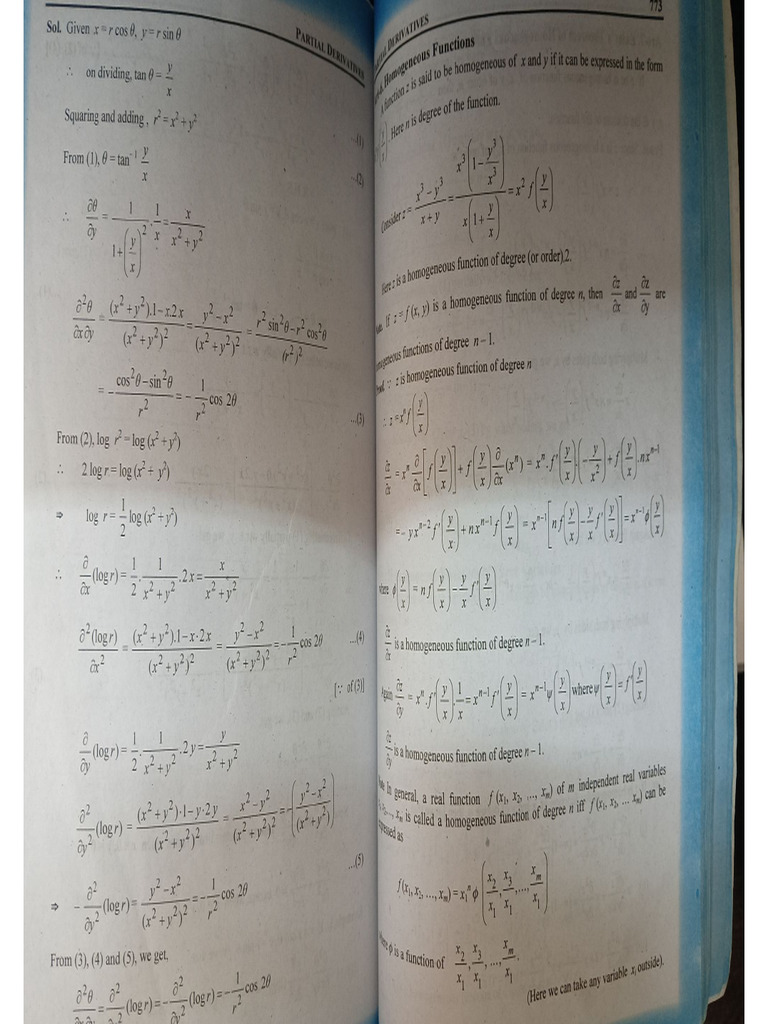 PARTIAL DERIVATIVES
Sol. Given x = r cos θ, y = r sin θ
∴ on dividing, tan θ = y/x
...(1)
Squaring and adding, r² = x² + y²
...(2)
From (1), θ = tan⁻¹ y/x
∴ ∂θ/∂y = 1/(1+(y/x)²) · 1/x = x/(x²+y²)
∂²θ/∂x∂y = ((x²+y²).1−x.2x)/(x²+y²)² = (y²−x²)/(x²+y²)² = (r² sin²θ−r² cos²θ)/(r²)²
= −(cos²θ−sin²θ)/r² = −1/r² cos 2θ ...(3)
From (2), log r² = log (x² + y²)
∴ 2 log r = log (x² + y²)
⇒ log r = 1/2 log (x² + y²)
∴ ∂/∂x (log r) = 1/2 · 1/(x²+y²) · 2x = x/(x²+y²)
∂²(log r)/∂x² = ((x²+y²).1−x·2x)/(x²+y²)² = (y²−x²)/(x²+y²)² = −1/r² cos 2θ ...(4)
[∵ of (3)]
∂/∂y (log r) = 1/2 · 1/(x²+y²) · 2y = y/(x²+y²)
∂²/∂y² (log r) = ((x²+y²)·1−y·2y)/(x²+y²)² = (x²−y²)/(x²+y²)² = −((y²−x²)/(x²+y²))
⇒ −∂²/∂y² (log r) = (y²−x²)/(x²+y²)² = −1/r² cos 2θ ...(5)
From (3), (4) and (5), we get,
∂²θ/∂x∂y = ∂²/∂x² (log r) = −∂²/∂y² (log r) = −1/r² cos 2θ
DERIVATIVES 773
Homogeneous Functions
A function z is said to be homogeneous of x and y if it can be expressed in the form
(y/x) Here n is degree of the function.
Consider z = (x³−y³)/(x+y) = x³(1−y³/x³)/x(1+y/x) = x² f(y/x)
Here z is a homogeneous function of degree (or order) 2.
If z = f (x, y) is a homogeneous function of degree n, then ∂z/∂x and ∂z/∂y are
functions of degree n − 1.
∵ z is homogeneous function of degree n
∴ z = xⁿ f(y/x)
∂z/∂x = xⁿ ∂/∂x [f(y/x)] + f(y/x) ∂/∂x (xⁿ) = xⁿ. f′(y/x).(−y/x²) + f(y/x). nxⁿ⁻¹
= −yxⁿ⁻² f′(y/x) + nxⁿ⁻¹ f(y/x) = xⁿ⁻¹ [n f(y/x) − y/x f′(y/x)] = xⁿ⁻¹ ϕ(y/x)
where ϕ(y/x) = n f(y/x) − y/x f′(y/x)
∂z/∂x is a homogeneous function of degree n − 1.
Again ∂z/∂y = xⁿ. f′(y/x). 1/x = xⁿ⁻¹ f′(y/x) = xⁿ⁻¹ ψ(y/x) where ψ(y/x) = f′(y/x)
∂z/∂y is a homogeneous function of degree n − 1.
In general, a real function f (x₁, x₂, ..., xₘ) of m independent real variables
..., xₘ is called a homogeneous function of degree n iff f (x₁, x₂, ... xₘ) can be
as
f (x₁, x₂, ..., xₘ) = x₁ⁿ ϕ (x₂/x₁, x₃/x₁, ..., xₘ/x₁)
where ϕ is a function of x₂/x₁, x₃/x₁, ..., xₘ/x₁.
(Here we can take any variable xᵢ outside).